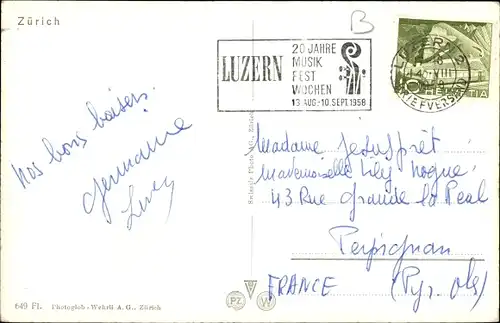 Zürich
B
LUZERN
20 JAHRE
MUSIK
FEST
WOCHEN
13. AUG.-10. SEPT. 1958
LUZERN 2
HELVETIA
Nos bons baisers.
Germaine
Lucy
Madame
Mademoiselle Lily Nogue
43 Rue Grande la Réal
Perpignan
FRANCE (Pyr. Ols)
649 Fl. Photoglob-Wehrli A. G., Zürich
PZ W